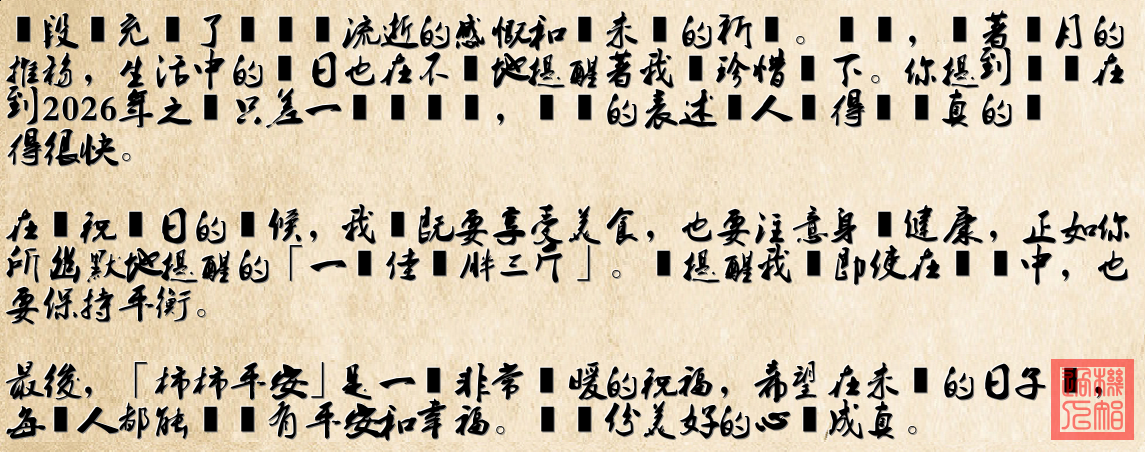 ▮段▮充▮了▮▮▮流逝的感慨和▮未▮的祈▮。▮▮，▮著▮月的
推移，生活中的▮日也在不▮地提醒著我▮珍惜▮下。你提到▮▮在
到2026年之▮只差一▮▮▮▮，▮▮的表述▮人▮得▮▮真的▮
得很快。
在▮祝▮日的▮候，我▮既要享受美食，也要注意身▮健康，正如你
所幽默地提醒的「一▮佳▮胖三斤」。▮提醒我▮即使在▮▮中，也
要保持平衡。
最後，「柿柿平安」是一▮非常▮暖的祝福，希望在未▮的日子▮，
每▮人都能▮▮有平安和幸福。▮▮份美好的心▮成真。